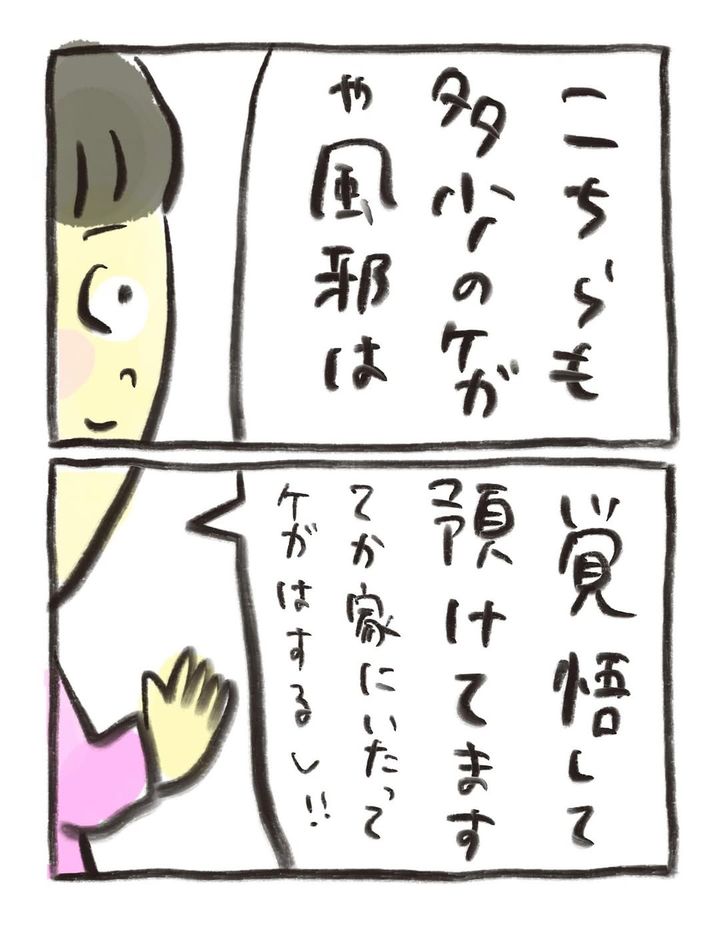 こちらも
多少のケガ
や風邪は
覚悟して
預けてます
てか家にいたって
ケガはするし!!